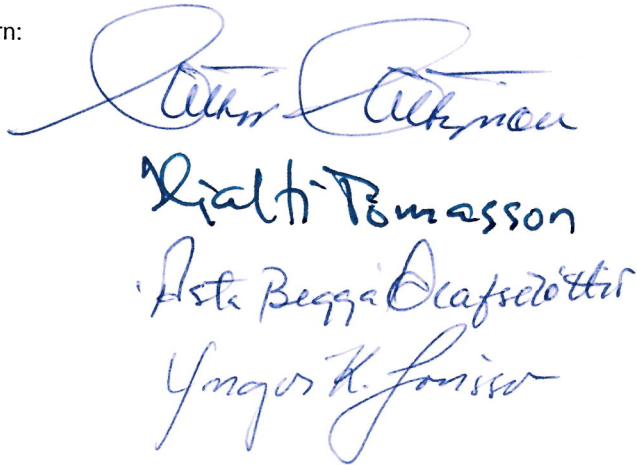 rn:
Hjalti Tómasson
Ásta Begga Ólafsdóttir
Yngvi K. Jónsson